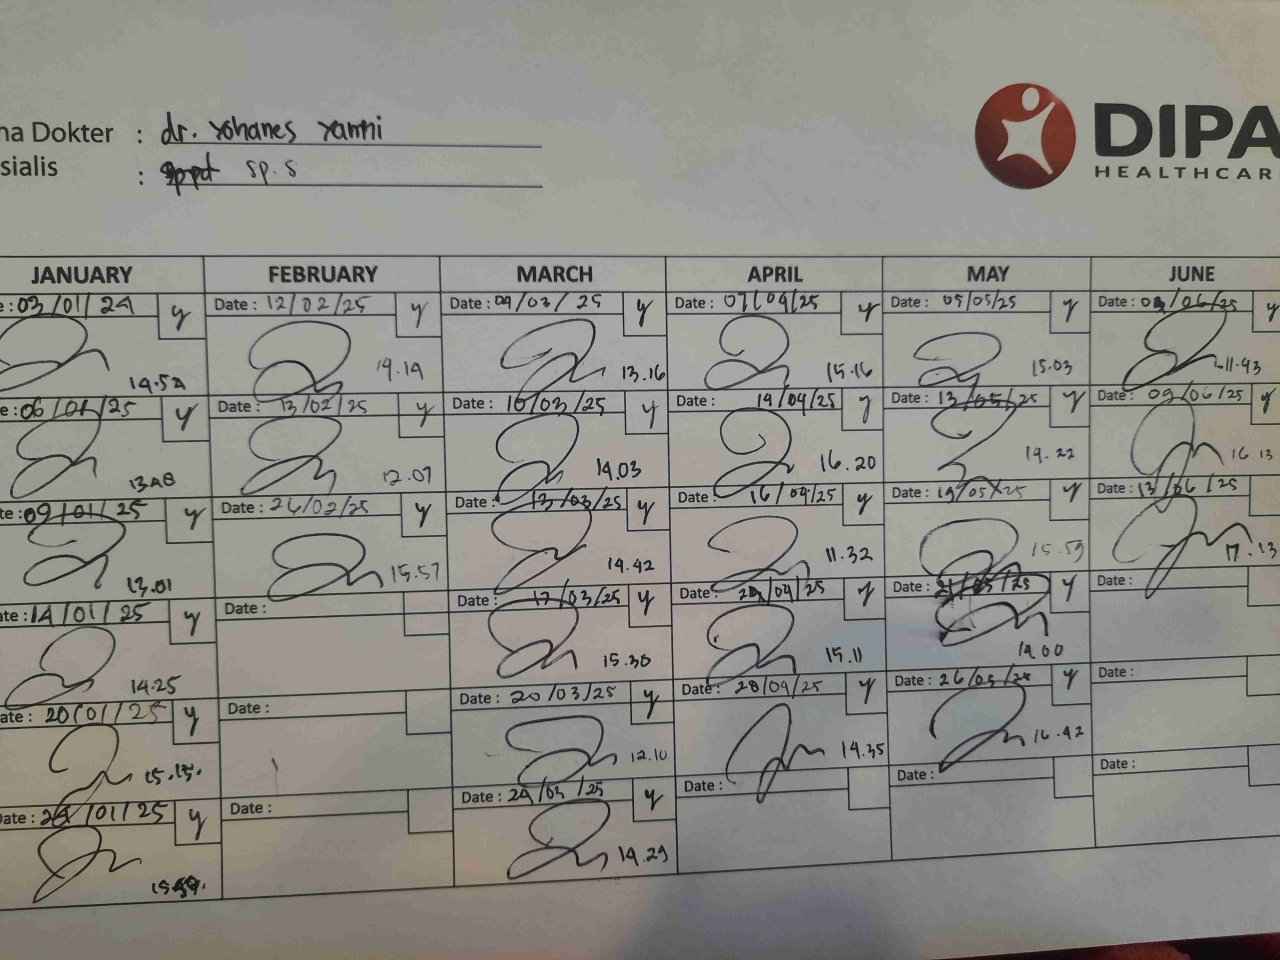 na Dokter : dr. Yohanes Yanni
sialis : sp.s
DIPA
HEALTHCAR
JANUARY FEBRUARY MARCH APRIL MAY JUNE
e : 03/01/24 y Date : 12/02/25 y Date : 04/03/25 y Date : 07/04/25 y Date : 05/05/25 y Date : 06/25 y
14.52 14.14 13.16 15.16 15.03 11.43
e : 06/01/25 y Date : 13/02/25 y Date : 10/03/25 y Date : 14/04/25 y Date : 13/05/25 y Date : 09/06/25 y
12.07 14.03 16.20 14.22 16.13
te : 09/01/25 y Date : 26/02/25 y Date : 13/03/25 y Date : 16/04/25 y Date : 19/05/25 y Date : 13/06/25 y
13.01 15.57 14.42 11.32 15.59 17.13
ate : 14/01/25 y Date : Date : 17/03/25 y Date : 24/04/25 y Date : 21/05/25 y Date :
14.25 15.30 15.11 14.00
ate : 20/01/25 y Date : Date : 20/03/25 y Date : 28/04/25 y Date : 26/05/25 y Date :
15.15. 12.10 14.35 16.42
Date : /01/25 y Date : Date : 24/03/25 y Date : Date : Date :
14.29